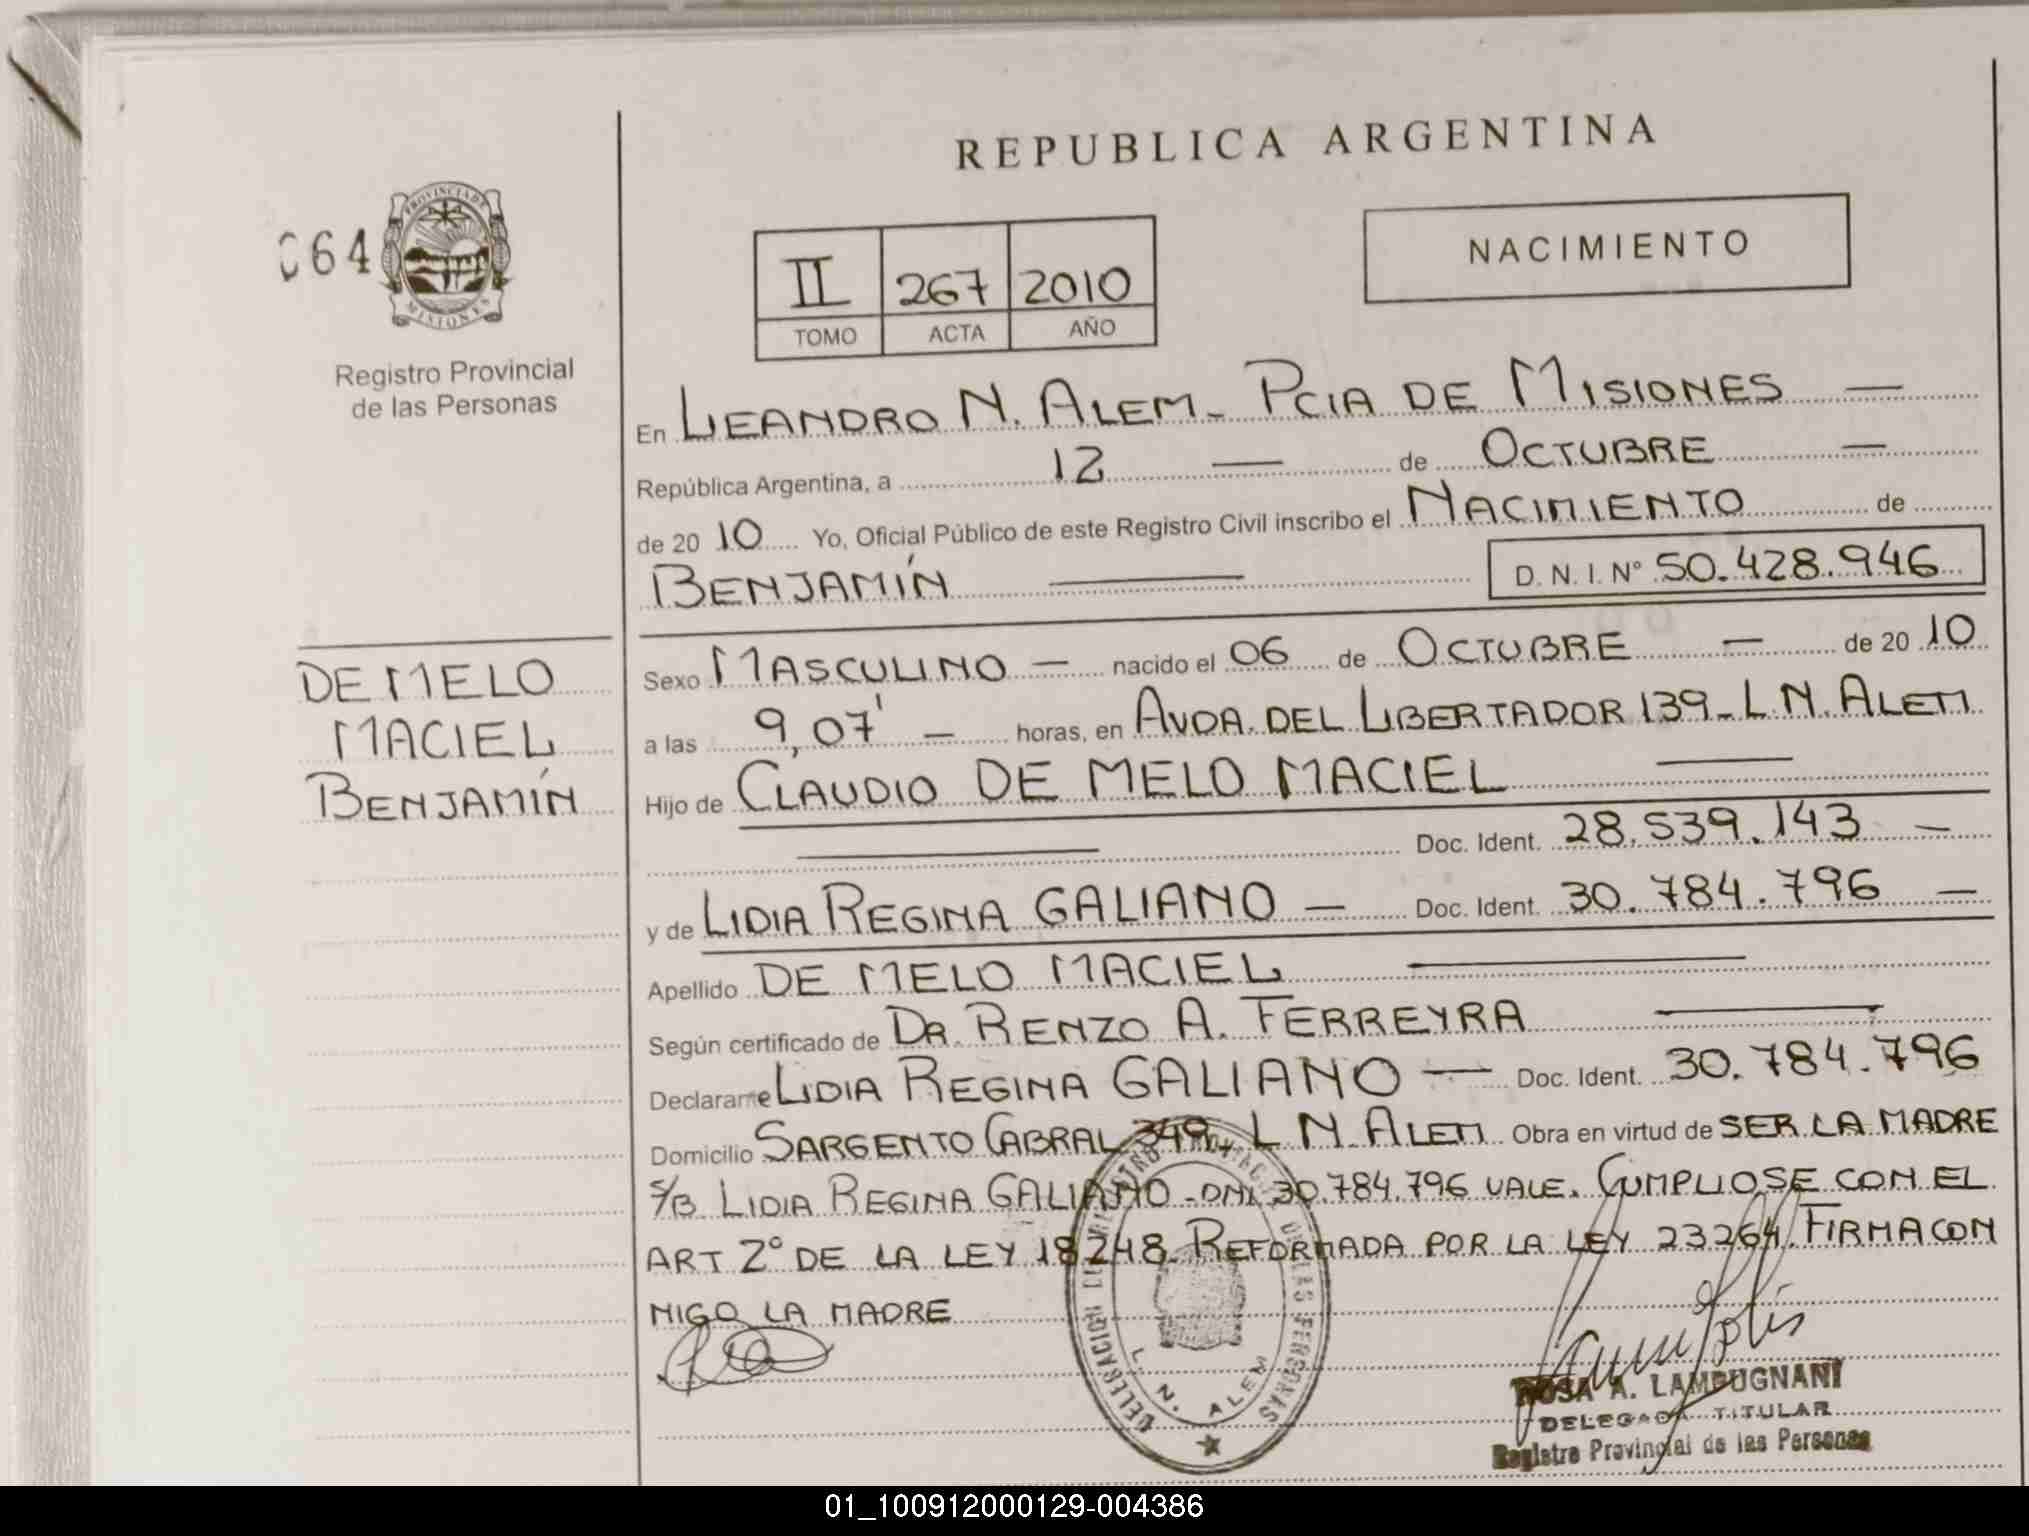 REPUBLICA ARGENTINA
064
PROVINCIA DE
MISIONES
Registro Provincial
de las Personas
II 267 2010
TOMO ACTA AÑO
NACIMIENTO
En LEANDRO N. ALEM - PCIA DE MISIONES —
República Argentina, a 12 — de OCTUBRE —
de 20 10 Yo, Oficial Público de este Registro Civil inscribo el NACIMIENTO de
BENJAMÍN — D. N. I. Nº 50.428.946
DE MELO
MACIEL
BENJAMÍN
Sexo MASCULINO — nacido el 06 de OCTUBRE — de 20 10
a las 9,07' — horas, en AVDA. DEL LIBERTADOR 139 - L N. ALEM
Hijo de CLAUDIO DE MELO MACIEL —
— Doc. Ident. 28.539.143 —
y de LIDIA REGINA GALIANO — Doc. Ident. 30.784.796 —
Apellido DE MELO MACIEL —
Según certificado de DR. RENZO A. FERREYRA —
Declarante LIDIA REGINA GALIANO — Doc. Ident. 30.784.796
Domicilio SARGENTO CABRAL 349, L N. ALEM Obra en virtud de SER LA MADRE
S/B LIDIA REGINA GALIANO - DNI 30.784.796 VALE. CUMPLIOSE CON EL
ART 2º DE LA LEY 18248. REFORMADA POR LA LEY 23264. FIRMA CON
MIGO LA MADRE
DELEGACION DEL REGISTRO PROVINCIAL DE LAS PERSONAS
L. N. ALEM
ROSA A. LAMPUGNANI
DELEGADA TITULAR
Registro Provincial de las Personas
01_100912000129-004386